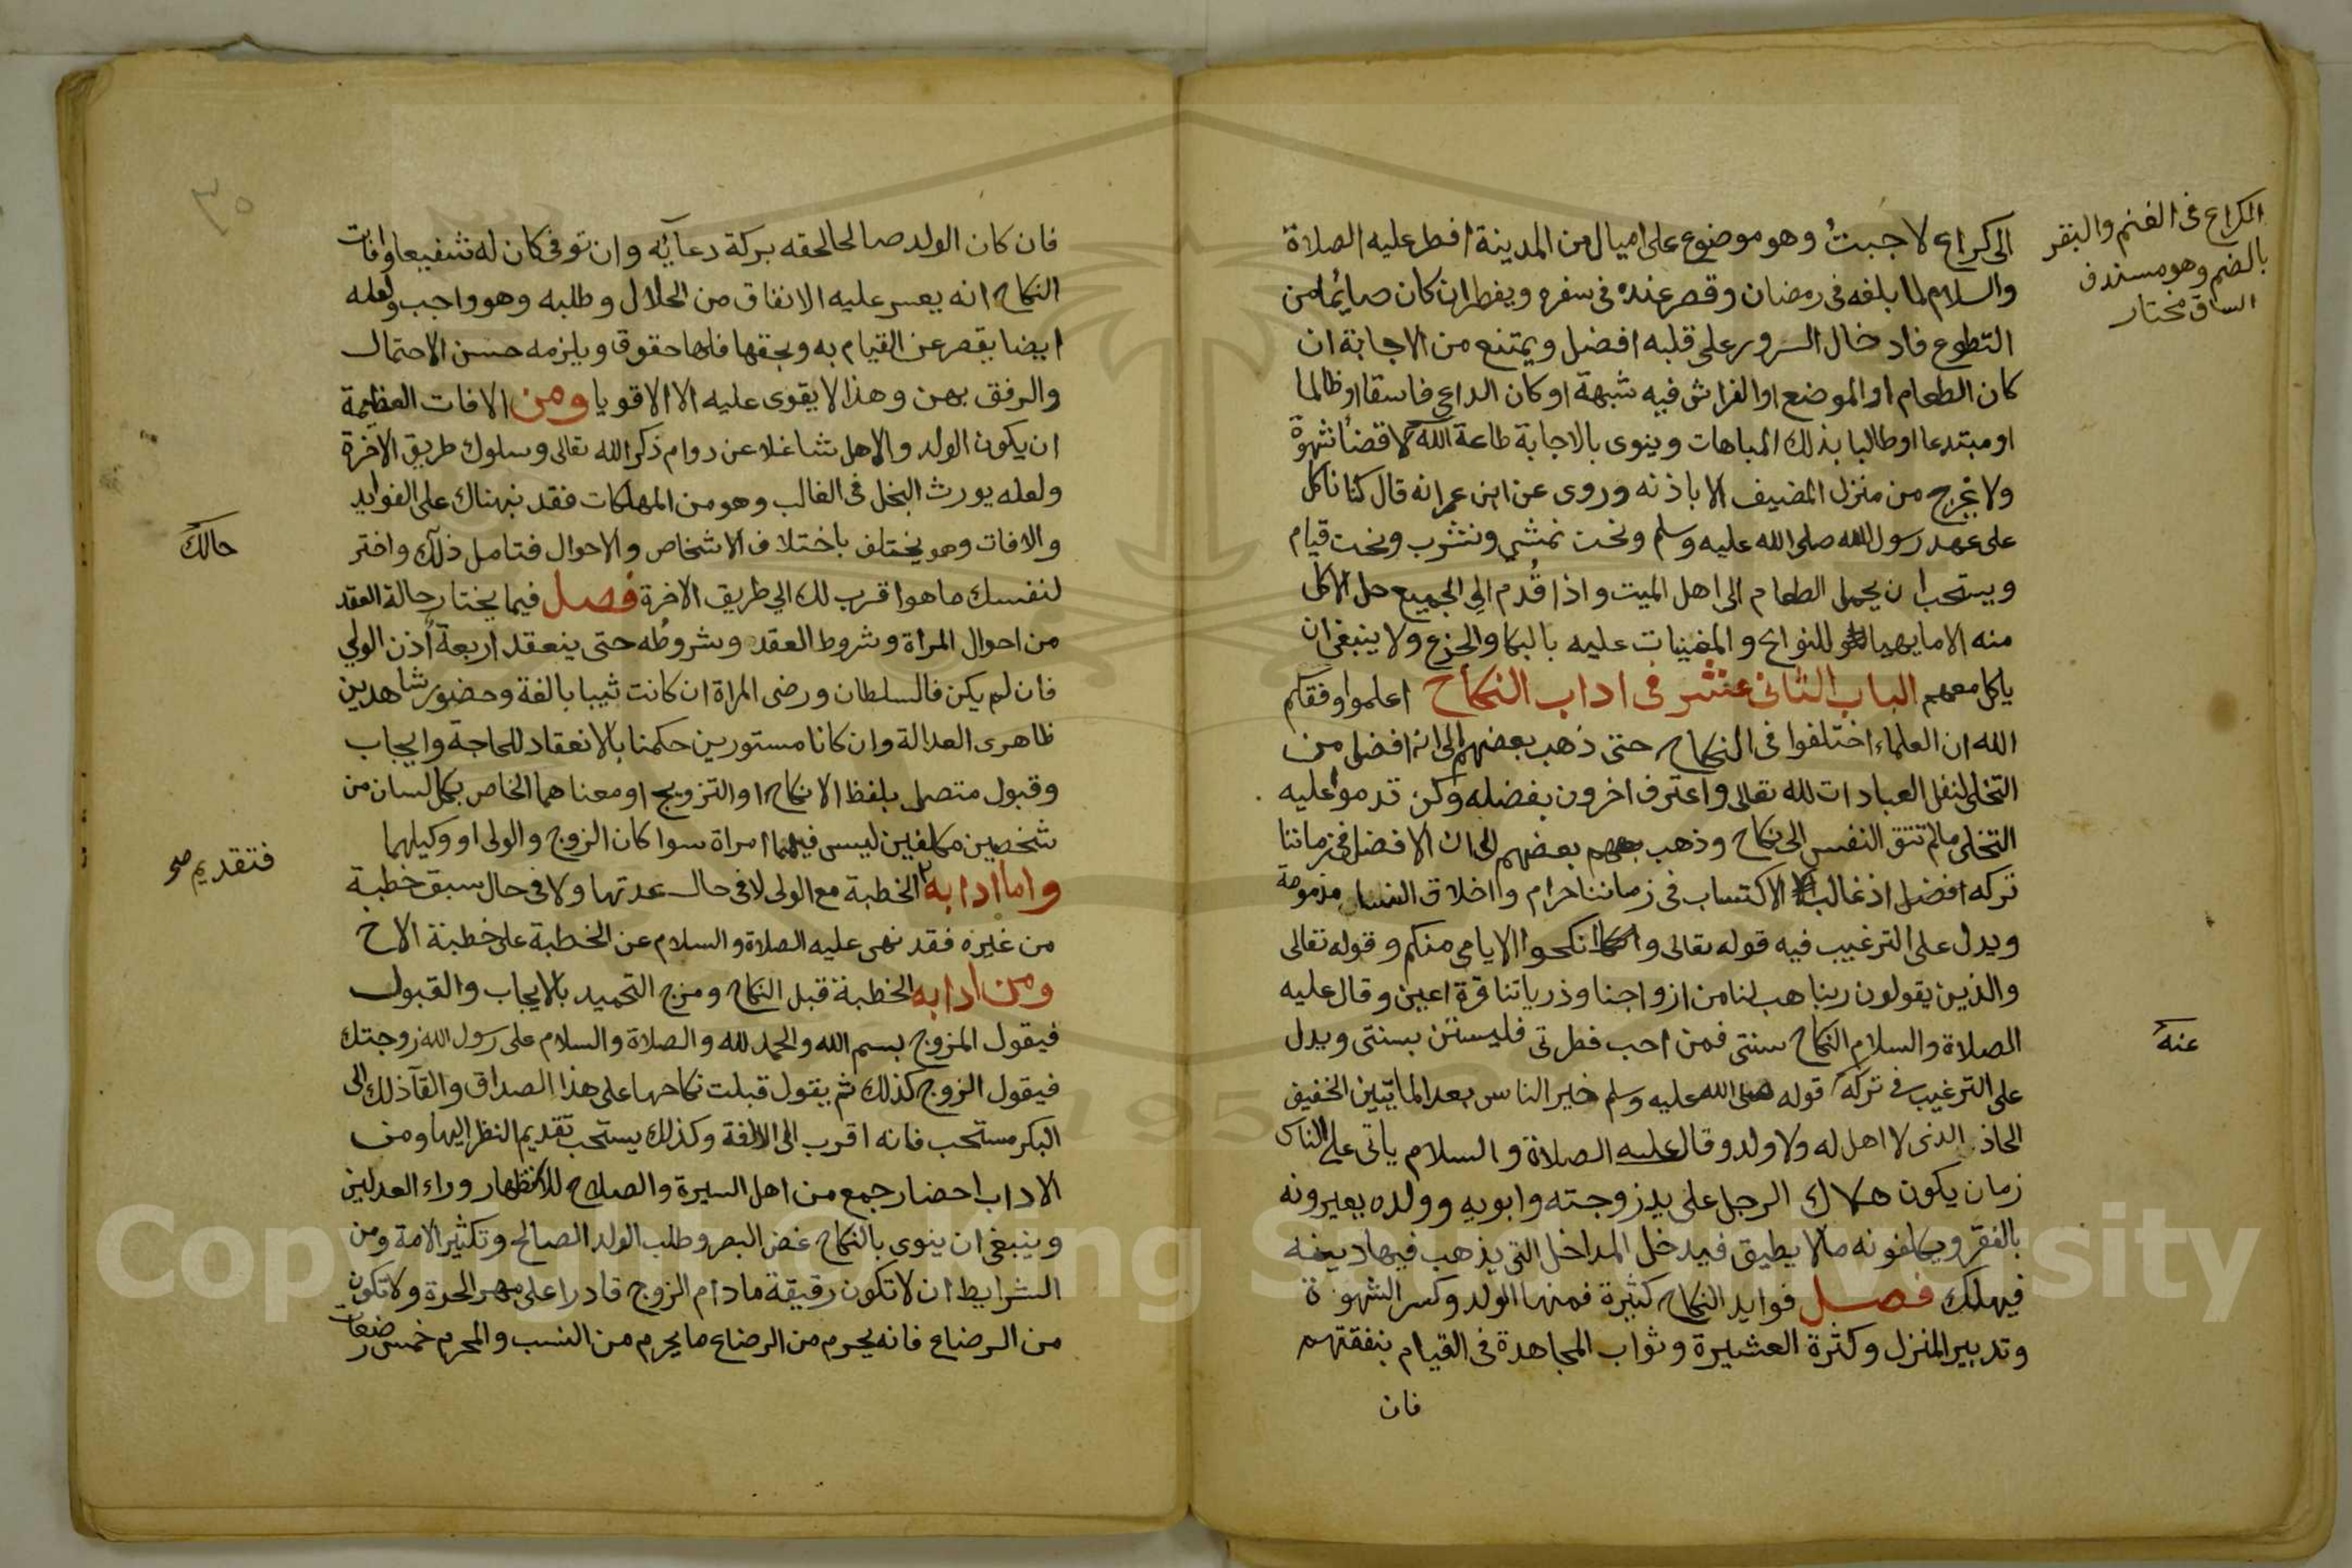 الى كراع لاجبت وهو موضوع على اميال من المدينة افطر عليه الصلاة
والسلام لما بلغه فى رمضان وقصر عنده فى سفره ويفطر ان كان صائما من
التطوع فادخال السرور على قلبه افضل ويمتنع من الاجابة ان
كان الطعام او الموضع او الفراش فيه شبهة او كان الداعى فاسقا او ظالما
او مبتدعا او طالبا بذلك المباهات وينوى بالاجابة طاعة الله لا قضا شهوة
ولا يخرج من منزل المضيف الا باذنه وروى عن ابن عمر انه قال كنا ناكل
على عهد رسول الله صلى الله عليه وسلم ونحن نمشي ونشرب ونحن قيام
ويستحب ان يحمل الطعام الى اهل الميت واذا قُدم الى الجميع حل الاكل
منه الا ما يهيا للنوايح والمغنيات عليه بالبكا والجزع ولا ينبغى ان
ياكل معهم الباب الثانى عشر فى اداب النكاح اعلموا وفقكم
الله ان العلماء اختلفوا فى النكاح حتى ذهب بعضهم الى انه افضل من
التخلى لنفل العبادات لله تعالى واعترف اخرون بفضله ولكن قدموا عليه
التخلى مالم تتق النفس الى نكاح وذهب بعضهم الى ان الافضل فى زماننا
تركه افضل اذ غالب الاكتساب فى زماننا حرام واخلاق النسا مذمومة
ويدل على الترغيب فيه قوله تعالى وانكحوا الايامى منكم وقوله تعالى
والذين يقولون ربنا هب لنا من ازواجنا وذرياتنا قرة اعين وقال عليه
الصلاة والسلام النكاح سنتى فمن احب فطرتى فليستن بسنتى ويدل
على الترغيب فى تركه قوله صلى الله عليه وسلم خير الناس بعد المايتين الخفيف
الحاذ الذى لا اهل له ولا ولد وقال عليه الصلاة والسلام ياتى على الناس
زمان يكون هلاك الرجل على يد زوجته وابويه وولده يعيرونه
بالفقر ويكلفونه مالا يطيق فيدخل المداخل التى يذهب فيها دينه
فيهلك فصل فوايد النكاح كثيرة فمنها الولد وكسر الشهوة
وتدبير المنزل وكثرة العشيرة وثواب المجاهدة فى القيام بنفقتهم
فان
الكراع فى الغنم والبقر
بالضم وهو مستدق
الساق مختار
عنه
٣٥
فان كان الولد صالحا لحقه بركة دعائه وان توفى كان له شفيعا وافات
النكاح انه يعسر عليه الانفاق من الحلال وطلبه وهو واجب ولعله
ايضا يقصر عن القيام به وبحقها فلها حقوق ويلزمه حسن الاحتمال
والرفق بهن وهذا لا يقوى عليه الا الاقويا ومن الافات العظيمة
ان يكون الولد والاهل شاغلا عن دوام ذكر الله تعالى وسلوك طريق الاخرة
ولعله يورث البخل فى الغالب وهو من المهلكات فقد نبهناك على الفوايد
والافات وهو يختلف باختلاف الاشخاص والاحوال فتامل ذلك واختر
لنفسك ما هو اقرب لك الي طريق الاخرة فصل فيما يختار حالة العقد
من احوال المراة وشروط العقد وشروطه حتى ينعقد اربعة اُذن الولي
فان لم يكن فالسلطان ورضى المراة ان كانت ثيبا بالغة وحضور شاهدين
ظاهرى العدالة وان كانا مستورين حكمنا بالانعقاد للحاجة وايجاب
وقبول متصل بلفظ الانكاح او التزويج او معناهما الخاص بكل لسان من
شخصين مكلفين ليس فيهما امراة سوا كان الزوج والولى او وكيلهما
واما ادابه الخطبة مع الولى لا فى حال عدتها ولا فى حال سبق خطبة
من غيره فقد نهى عليه الصلاة والسلام عن الخطبة على خطبة الاخ
ومن ادابه الخطبة قبل النكاح ومزج التحميد بالايجاب والقبول
فيقول المزوج بسم الله والحمد لله والصلاة والسلام على رسول الله زوجتك
فيقول الزوج كذلك ثم يقول قبلت نكاحها على هذا الصداق والقا ذلك الى
البكر مستحب فانه اقرب الى الالفة وكذلك يستحب تقديم النظر اليها ومن
الاداب احضار جمع من اهل السيرة والصلاح وراء العدلين
وينبغى ان ينوى بالنكاح غض البصر وطلب الولد الصالح وتكثير الامة ومن
الشرايط ان لا تكون رقيقة ما دام الزوج قادرا على مهر الحرة ولا تكون
من الرضاع فانه يحرم من الرضاع ما يحرم من النسب والمحرم خمس رضعات
حالك
فتقديم صح
Copyright © King Saud University
195